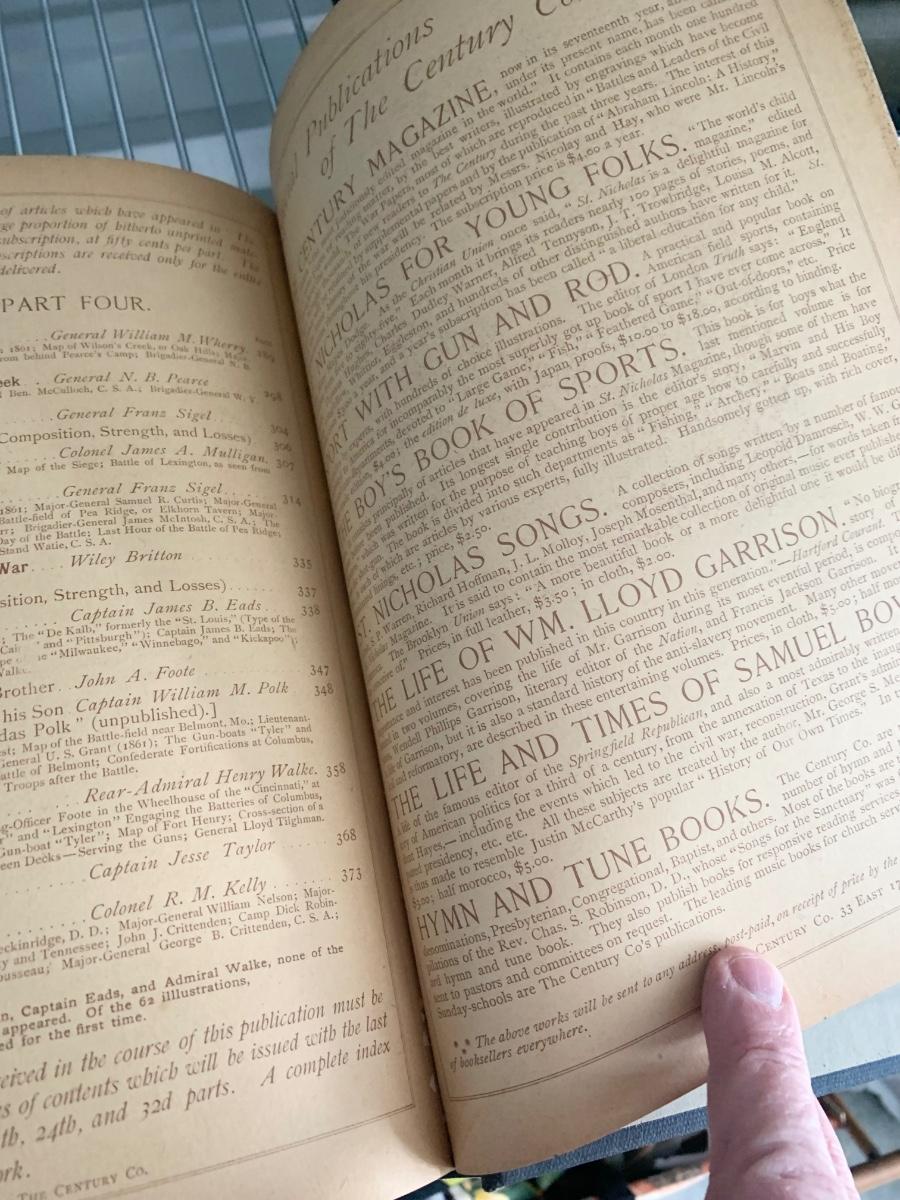 of articles which have appeared in The
ge proportion of hitherto unprinted
subscription, at fifty cents per part. The
scriptions are received only for the entire
delivered.
PART FOUR.
General William M. Wherry
1861; Map of Wilson's Creek, or Oak Hills;
from behind Pearce's Camp; Brigadier-General N. B.
eek . General N. B. Pearce
Ben. McCulloch, C. S. A.; Brigadier-General W. Y. 298
General Franz Sigel 304
Composition, Strength, and Losses) 306
Colonel James A. Mulligan. 307
Map of the Siege; Battle of Lexington, as seen from
General Franz Sigel 314
1861; Major-General Samuel R. Curtis; Major-General
Battle-field of Pea Ridge, or Elkhorn Tavern; Major-
rr; Brigadier-General James McIntosh, C. S. A.; The
Day of the Battle; Last Hour of the Battle of Pea Ridge;
Stand Watie, C. S. A.
War Wiley Britton 335
sition, Strength, and Losses) 337
Captain James B. Eads 338
; The "De Kalb," formerly the "St. Louis," (Type of the
and "Pittsburgh"); Captain James B. Eads; The
"Milwaukee," "Winnebago," and "Kickapoo";
Walke.
Brother John A. Foote 347
his Son Captain William M. Polk 348
das Polk" (unpublished).]
est; Map of the Battle-field near Belmont, Mo.; Lieutenant-
General U. S. Grant (1861); The Gun-boats "Tyler" and
attle of Belmont; Confederate Fortifications at Columbus,
Troops after the Battle.
Rear-Admiral Henry Walke. 358
g-Officer Foote in the Wheelhouse of the "Cincinnati," at
r" and "Lexington" Engaging the Batteries of Columbus,
Gun-boat "Tyler"; Map of Fort Henry; Cross-section of a
een Decks—Serving the Guns; General Lloyd Tilghman.
Captain Jesse Taylor 368
Colonel R. M. Kelly 373
eckinridge, D. D.; Major-General William Nelson; Major-
y and Tennessee; John J. Crittenden; Camp Dick Robin-
ousseau; Major-General George B. Crittenden, C. S. A.;
n, Captain Eads, and Admiral Walke, none of the
appeared. Of the 62 illlustrations,
ed for the first time.
ceived in the course of this publication must be
es of contents which will be issued with the last
th, 24th, and 32d parts. A complete index
ork.
THE CENTURY CO.
Publications
of The Century Co
CENTURY MAGAZINE, now in its seventeenth year,
under its present name, has been called
edited magazine in the world." It contains each month one hundred
by the best writers, illustrated by engravings which have become
War Papers, most of which are reproduced in "Battles and Leaders of the Civil
of new readers to The Century during the past three years. The interest of this
by supplemental papers and by the publication of "Abraham Lincoln: A History,"
of the war will be related by Messrs. Nicolay and Hay, who were Mr. Lincoln's
his presidency. The subscription price is $4.00 a year.
NICHOLAS FOR YOUNG FOLKS. "The world's child
magazine," edited
Dodge. As the Christian Union once said, "St. Nicholas is a delightful magazine for
Each month it brings its readers nearly 100 pages of stories, poems, and
Charles Dudley Warner, Alfred Tennyson, J. T. Trowbridge, Louisa M. Alcott,
Eggleston, and hundreds of other distinguished authors have written for it. St.
a year, and a year's subscription has been called "a liberal education for any child."
ORT WITH GUN AND ROD. A practical and popular book on
American field sports, containing
experts, with hundreds of choice illustrations. The editor of London Truth says: "England
America for incomparably the most superbly got up book of sport I have ever come across." It
departments, devoted to "Large Game," "Fish," "Feathered Game," "Out-of-doors," etc. Price
$4.00; the edition de luxe, with Japan proofs, $10.00 to $18.00, according to binding,
E BOY'S BOOK OF SPORTS. This book is for boys what the
last mentioned volume is for
principally of articles that have appeared in St. Nicholas Magazine, though some of them have
been published. Its longest single contribution is the editor's story, "Marvin and His Boy
which was written for the purpose of teaching boys of proper age how to carefully and successfully
shot-gun. The book is divided into such departments as "Fishing," "Archery," "Boats and Boating,"
of which are articles by various experts, fully illustrated. Handsomely gotten up, with rich cover,
linings, etc.; price, $2.50.
ST. NICHOLAS SONGS. A collection of songs written by a number of famous
composers, including Leopold Damrosch, W. W. G
P. Warren, Richard Hoffman, J. L. Molloy, Joseph Mosenthal, and many others,—for words taken
Nicholas Magazine. It is said to contain the most remarkable collection of original music ever published
The Brooklyn Union says: "A more beautiful book or a more delightful one it would be
conceive of." Prices, in full leather, $3.50; in cloth, $2.00.
THE LIFE OF WM. LLOYD GARRISON. "No biog
story of
and interest has been published in this country in this generation."—Hartford Courant.
in two volumes, covering the life of Mr. Garrison during its most eventful period, is compo
Wendell Phillips Garrison, literary editor of the Nation, and Francis Jackson Garrison. It
of Garrison, but it is also a standard history of the anti-slavery movement. Many other move
and reformatory, are described in these entertaining volumes. Prices, in cloth, $5.00; half mor
THE LIFE AND TIMES OF SAMUEL BOW
life of the famous editor of the Springfield Republican, and also a most admirably written
of American politics for a third of a century, from the annexation of Texas to the inaugu
Hayes,—including the events which led to the civil war, reconstruction, Grant's admin
presidency, etc. etc. All these subjects are treated by the author, Mr. George S. Me
is thus made to resemble Justin McCarthy's popular "History of Our Own Times." In
$3.00; half morocco, $5.00.
HYMN AND TUNE BOOKS. The Century Co. are
number of hymn and
denominations, Presbyterian, Congregational, Baptist, and others. Most of the books are
pilations of the Rev. Chas. S. Robinson, D. D., whose "Songs for the Sanctuary" was
hymn and tune book. They also publish books for responsive reading services
sent to pastors and committees on request. The leading music books for church serv
Sunday-schools are The Century Co's publications.
The above works will be sent to any address, post-paid, on receipt of price by the
of booksellers everywhere. CENTURY CO. 33 EAST 17